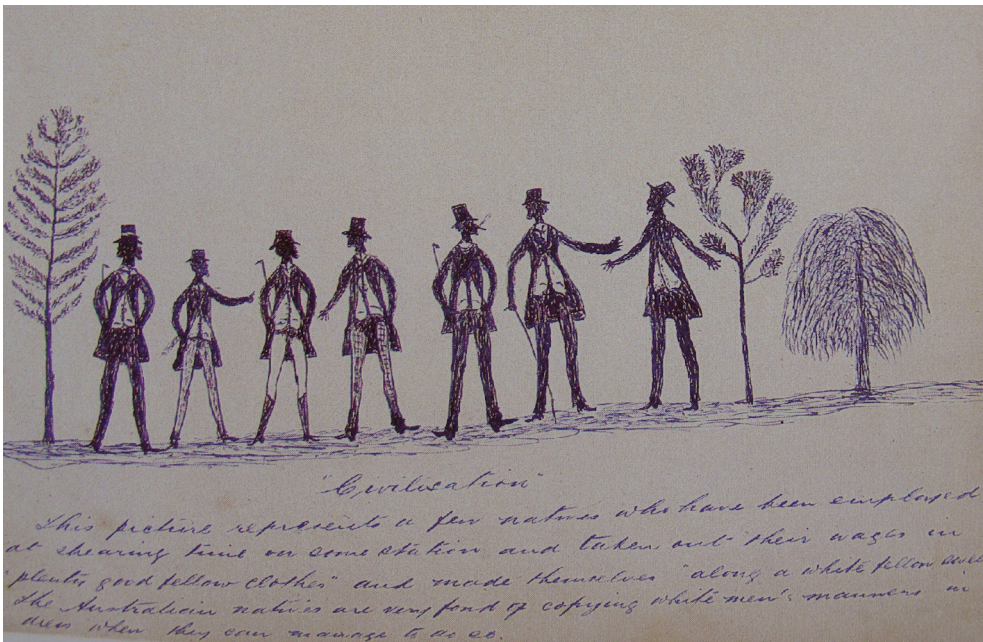 "Civilisation"
This picture represents a few natives who have been employed
at shearing time on some station and taken out their wages in
"plenty good fellow clothes" and made themselves "along a white fellow
The Australian natives are very fond of copying white men's manners in
dress when they can manage to do so.